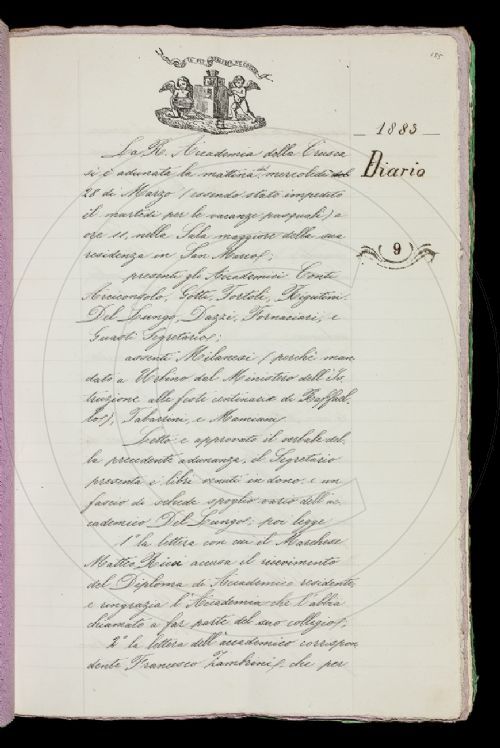 185
IL PIÙ BEL FIOR NE COGLIE
1883
Diario
9
La R. Accademia della Crusca
si è adunata la mattina del mercoledì del
28 di Marzo (essendo stato impedito
il martedì per le vacanze pasquali) a
ore 11, nella Sala maggiore della sua
residenza in San Marco;
presenti gli Accademici Conti
Arciconsolo, Gotti, Tortoli, Rigutini,
Del Lungo, Dazzi, Fornaciari, e
Guasti Segretario;
assenti Milanesi (perchè man
dato a Urbino dal Ministero dell'Is
truzione alle feste centenarie di Raffael
lo), Tabarrini, e Mamiani.
Letto e approvato il verbale del
la precedente adunanza, il Segretario
presenta i libri venuti in dono, e un
fascio di schede spoglio vario dell'ac
cademico Del Lungo; poi legge
1° la lettera con cui il Marchese
Matteo Ricci accusa il ricevimento
del Diploma di Accademico residente,
e ringrazia l'Accademia che l'abbia
chiamato a far parte del suo collegio;
2° la lettera dell'accademico corrispon
dente Francesco Zambrini, che per